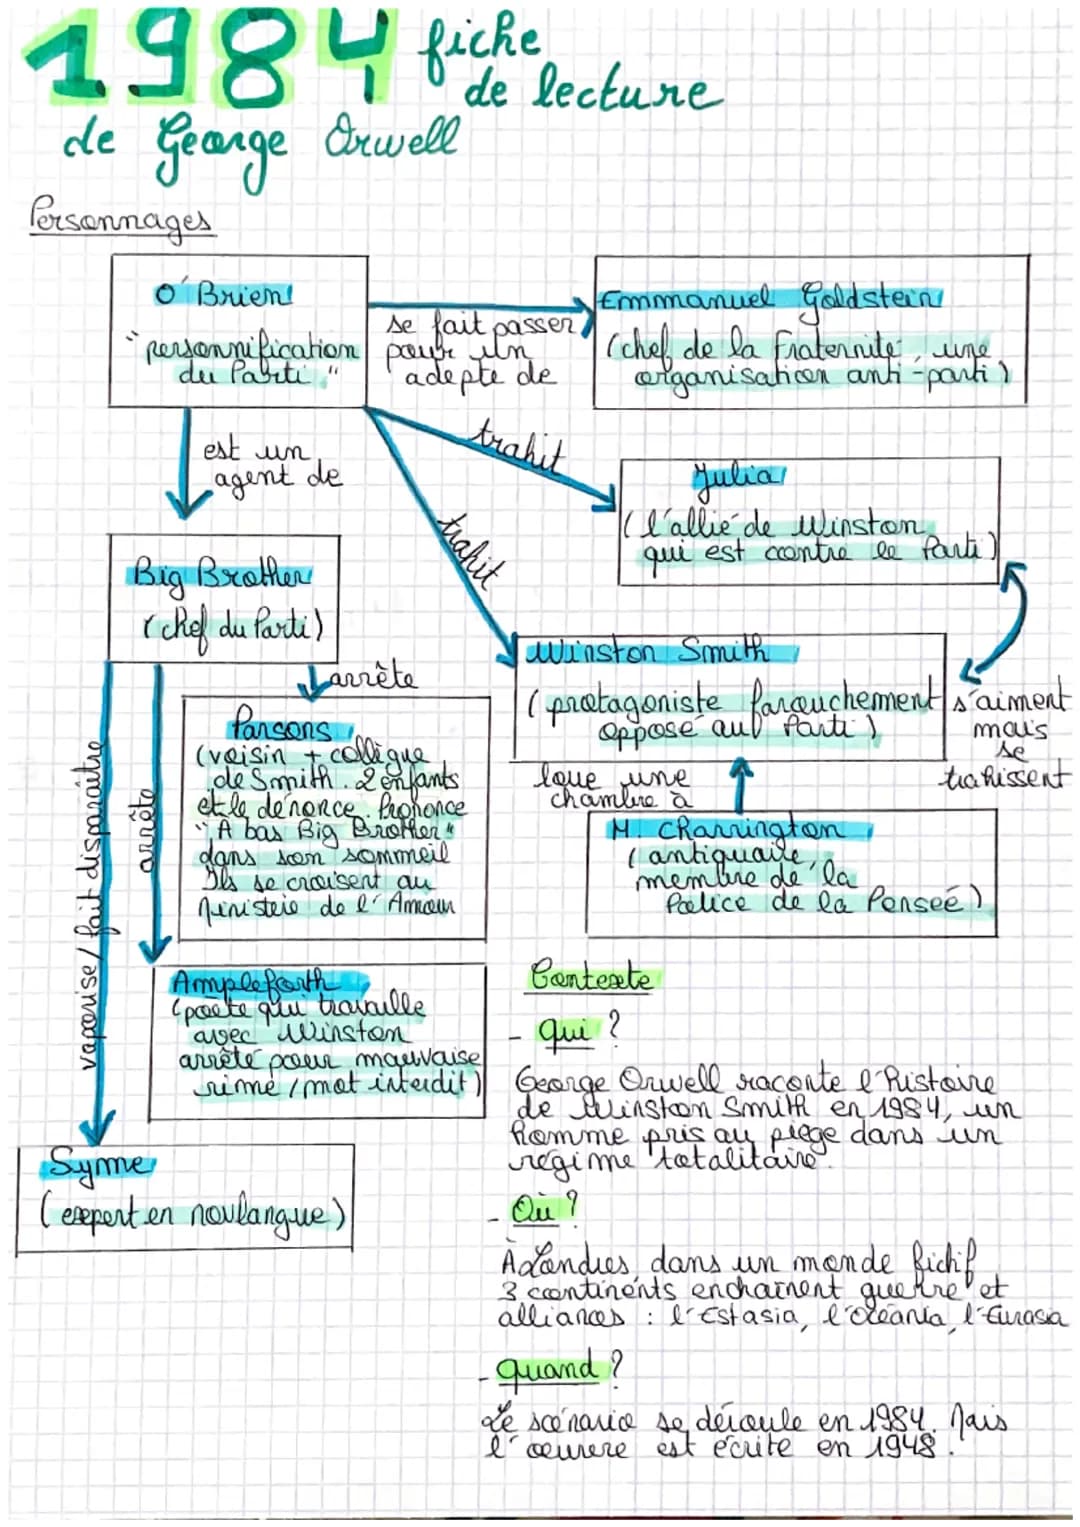 1984 fiche
de lecture
de George Orwell
Personnages
O'Brien
"personnification
du Parti"
se fait passer
pour un
adepte de
Emmanuel Goldstein
(chef de la Fraternité, une
organisation anti-parti)
est un
agent de
trahit
trahit
Julia
(l'allié de Winston
qui est contre le Parti)
Big Brother
(chef du Parti)
Winston Smith
(protagoniste farouchement
opposé au Parti)
s'aiment
mais
se
trahissent
arrête
Parsons
(voisin + collègue
de Smith. 2 enfants
et le dénonce. Prononce
"A bas Big Brother"
dans son sommeil
Ils se croisent au
Ministère de l'Amour
loue une
chambre à
M. Charrington
(antiquaire,
membre de la
Police de la Penseé)
vaporise/fait disparaître
arrête
Ampleforth
(poète qui travaille
avec Winston
arrêté pour mauvaise
rime/mot interdit)
Syme
(expert en novlangue)
Contexte
- qui ?
George Orwell raconte l'histoire
de Winston Smith en 1984, un
homme pris au piège dans un
régime totalitaire.
- Où ?
À Londres, dans un monde fictif
3 continents enchaînent guerre et
alliances : l'Estasia, l'Océania, l'Eurasia
- quand ?
Le scénario se déroule en 1984. Mais
l'œuvere est écrite en 1948.